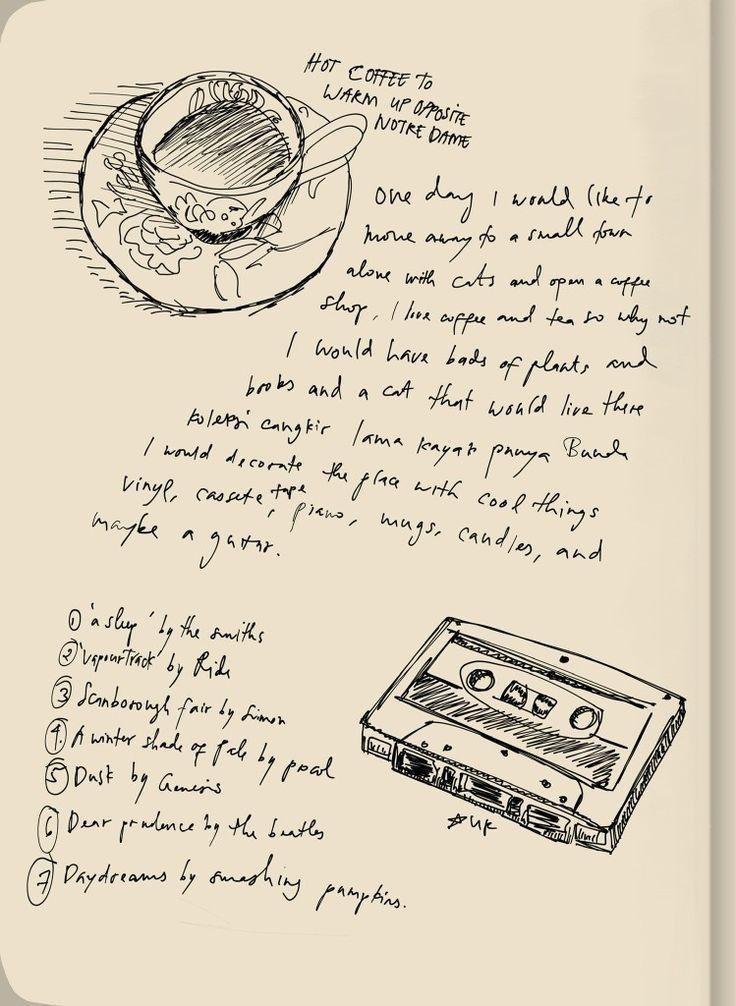 HOT COFFEE TO
WARM UP OPPOSITE
NOTRE DAME
One day I would like to
move away to a small town
alone with cats and open a coffee
shop, I love coffee and tea so why not
I would have bads of plants and
books and a cat that would live there
koleksi cangkir lama kayak punya Bunda
I would decorate the place with cool things
vinyl, cassete tape, piano, mugs, candles, and
maybe a guitar.
① 'asleep' by the smiths
② 'Vapour Track' by Ride
③ Scanborough fair by Simon
④ A winter shade of Pale by procol
⑤ Dusk by Genesis
⑥ Dear prudence by the beatles
⑦ Daydreams by smashing pumpkins.